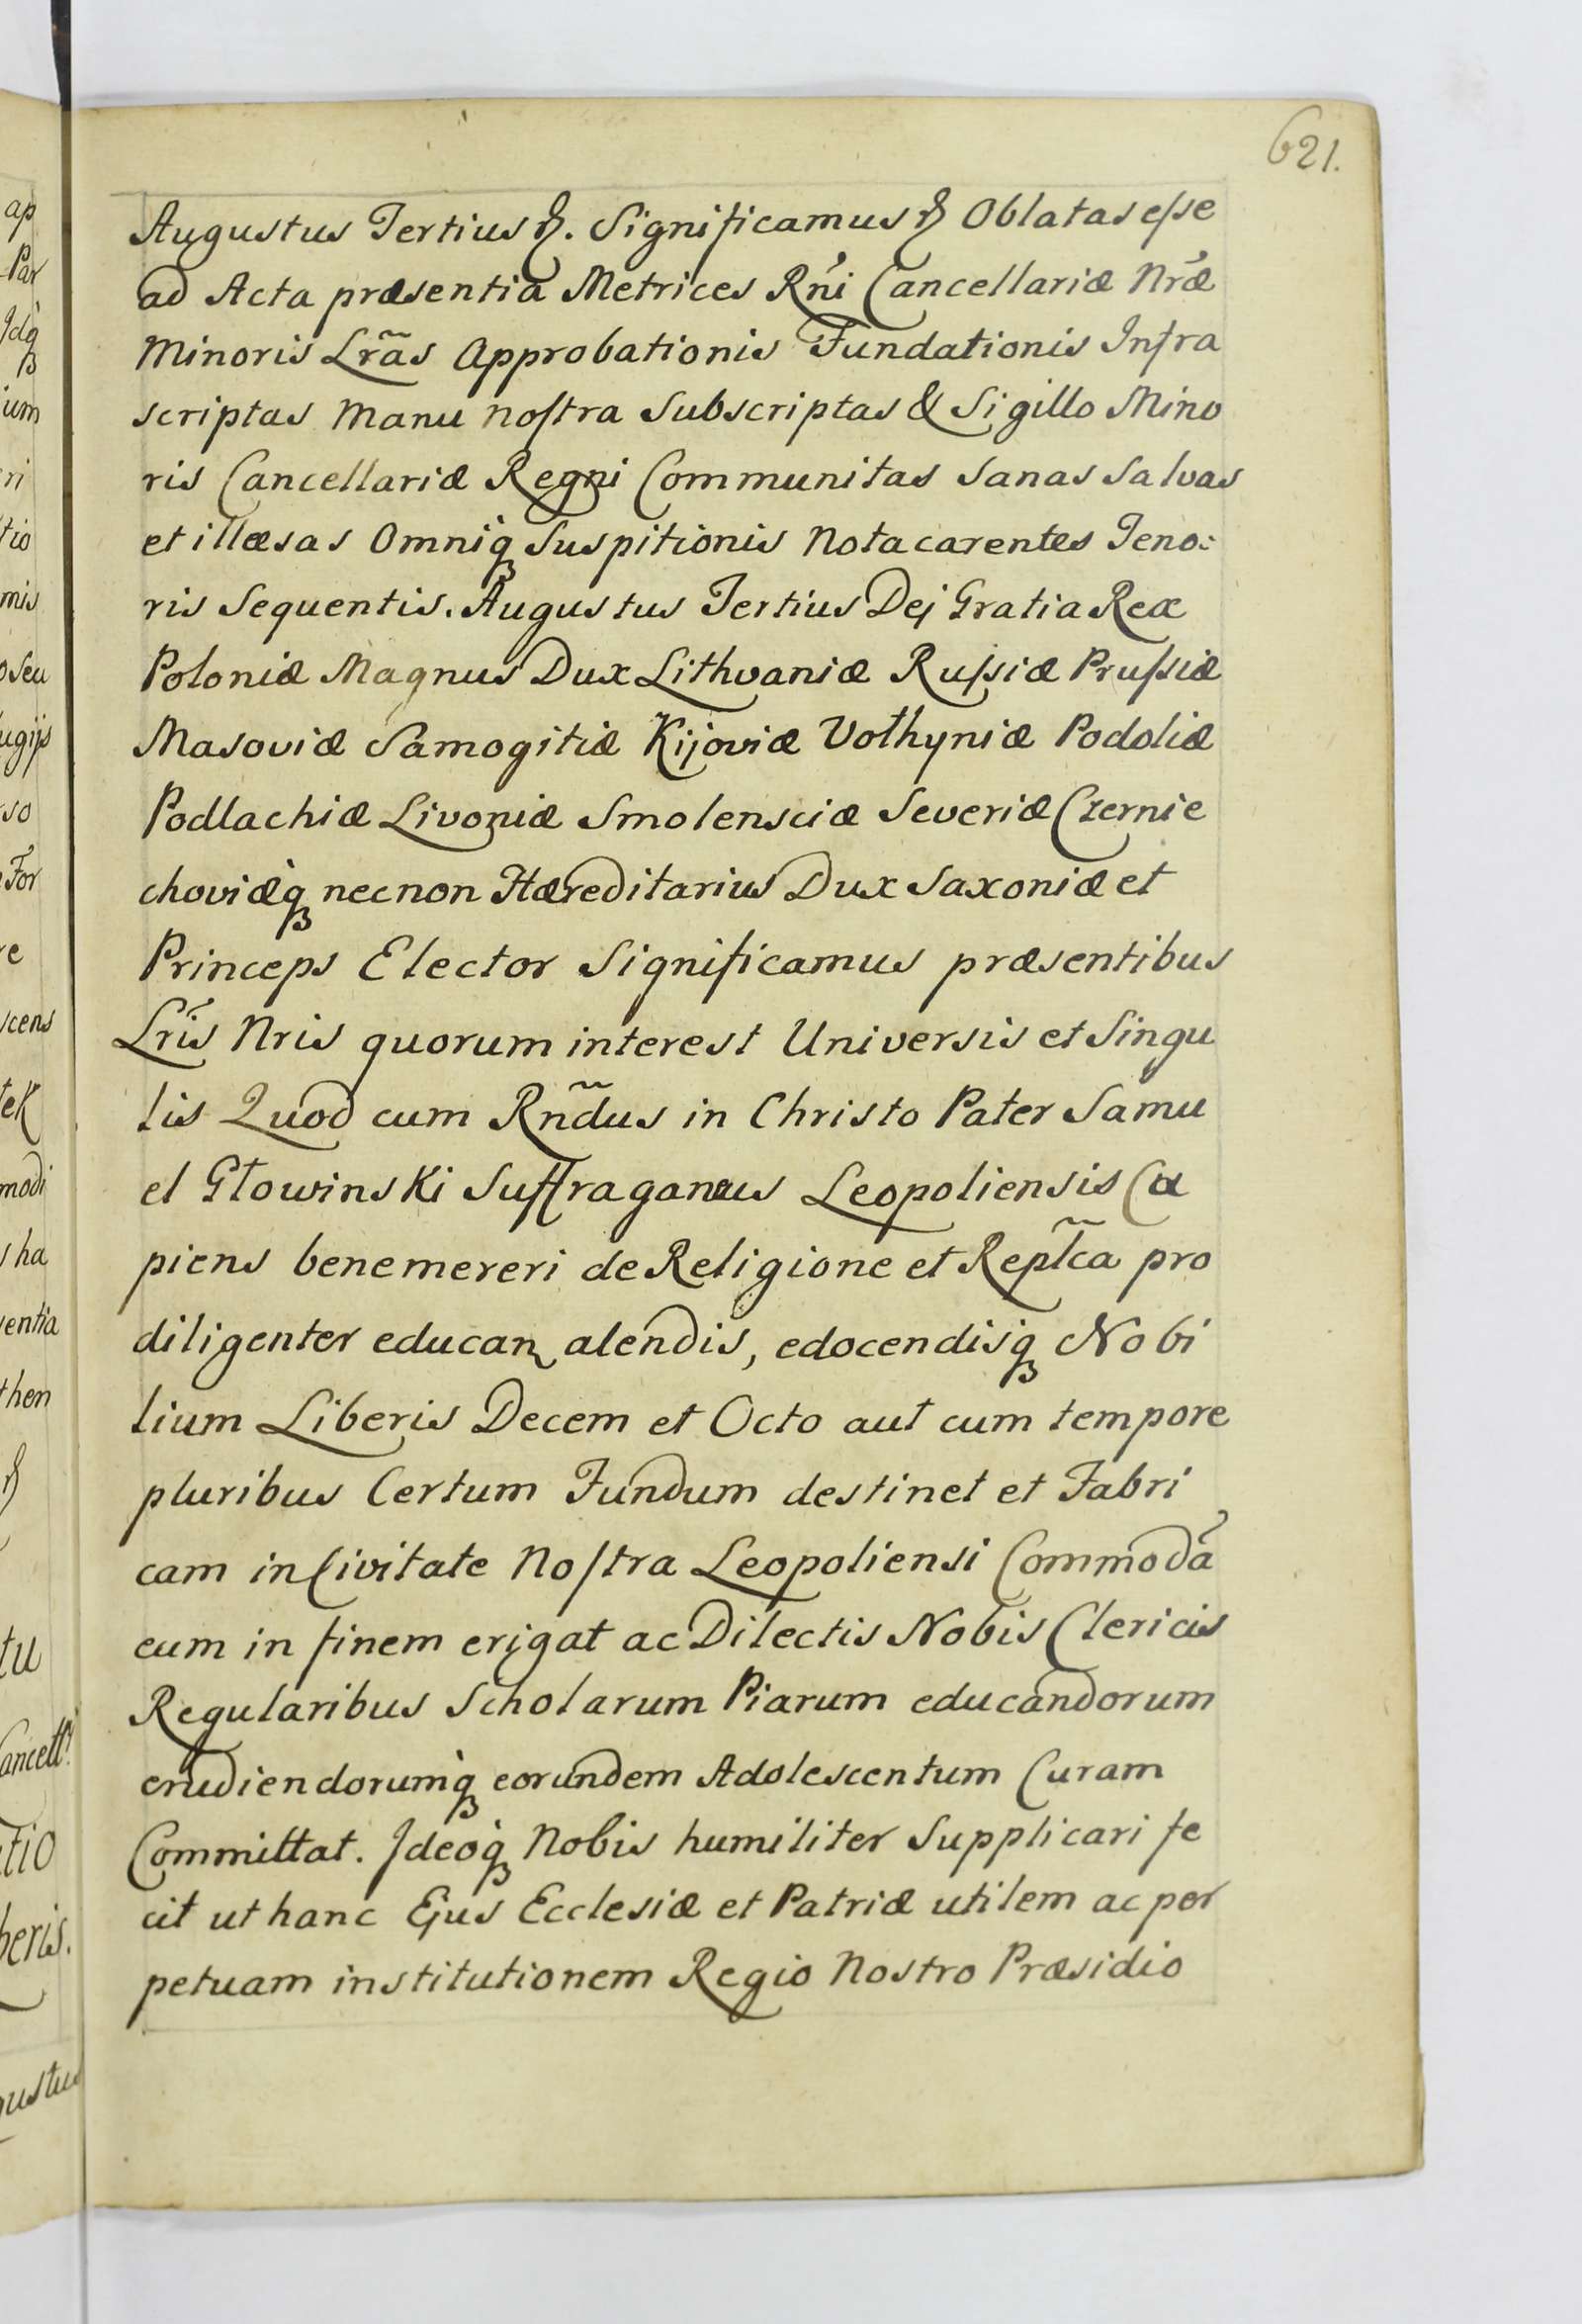 621.
Augustus Tertius &. Significamus & Oblatas eſse
ad Acta præsentia Metrices Rñi Cancellariæ Nræ
Minoris Lrãs Approbationis Fundationis Infra
scriptas Manu noſtra Subscriptas & Sigillo Mino
ris Cancellariæ Regni Communitas Sanas Salvas
et illæsas Omniq̃ Suspitionis Nota carentes Teno:
ris Sequentis. Augustus Tertius Dei Gratia Rex
Poloniæ Magnus Dux Lithvaniæ Ruſsiæ Pruſsiæ
Masoviæ Samogitiæ Kijoviæ Volhyniæ Podoliæ
Podlachiæ Livoniæ Smolensciæ Severiæ Czernie
choviæq̃ necnon Hæreditarius Dux Saxoniæ et
Princeps Elector Significamus præsentibus
Lrĩs Nris quorum interest Universis et Singu
lis Quod cum Rñdus in Christo Pater Samu
el Głowinski Suffraganeus Leopoliensis Cu
piens benemereri de Religione et Replĩca pro
diligenter educan alendis, edocendisq̃ Nobi
lium Liberis Decem et Octo aut cum tempore
pluribus Certum Fundum destinet et Fabri
cam in Civitate Noſtra Leopoliensi Commodã
eum in finem erigat ac Dilectis Nobis Clericis
Regularibus Scholarum Piarum educandorum
erudiendorumq̃ eorundem Adolescentum Curam
Committat. Ideoq̃ Nobis humiliter Supplicari fe
cit ut hanc Ejus Ecclesiæ et Patriæ utilem ac per
petuam institutionem Regio Nostro Præsidio